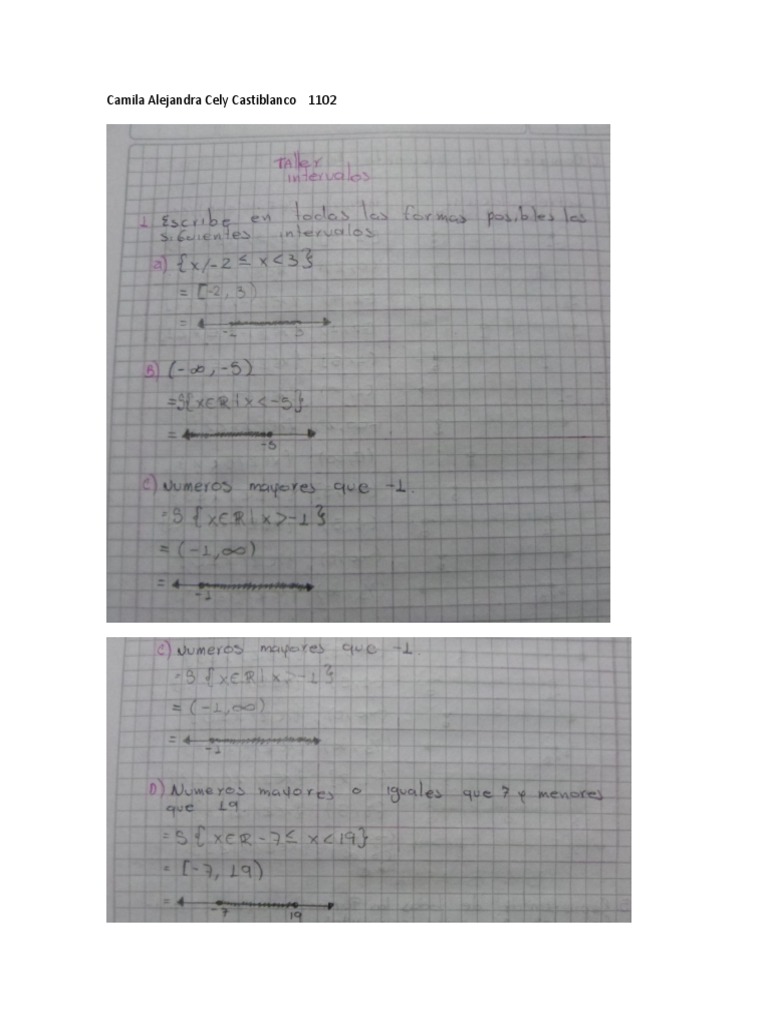 Camila Alejandra Cely Castiblanco 1102
Taller
intervalos
1 Escribe en todas las formas posibles los
siguientes intervalos
a) {x/-2 ≤ x < 3}
= [-2, 3)
= -2 3
B) (-∞, -5)
=S{x∈R | x < -5}
= -5
C) Numeros mayores que -1.
= S {x∈R | x > -1}
= (-1, ∞)
= -1
C) Numeros mayores que -1.
= S {x∈R | x > -1}
= (-1, ∞)
= -1
D) Numeros mayores o iguales que 7 y menores
que 19
= S{x∈R -7 ≤ x < 19}
= [-7, 19)
= -7 19